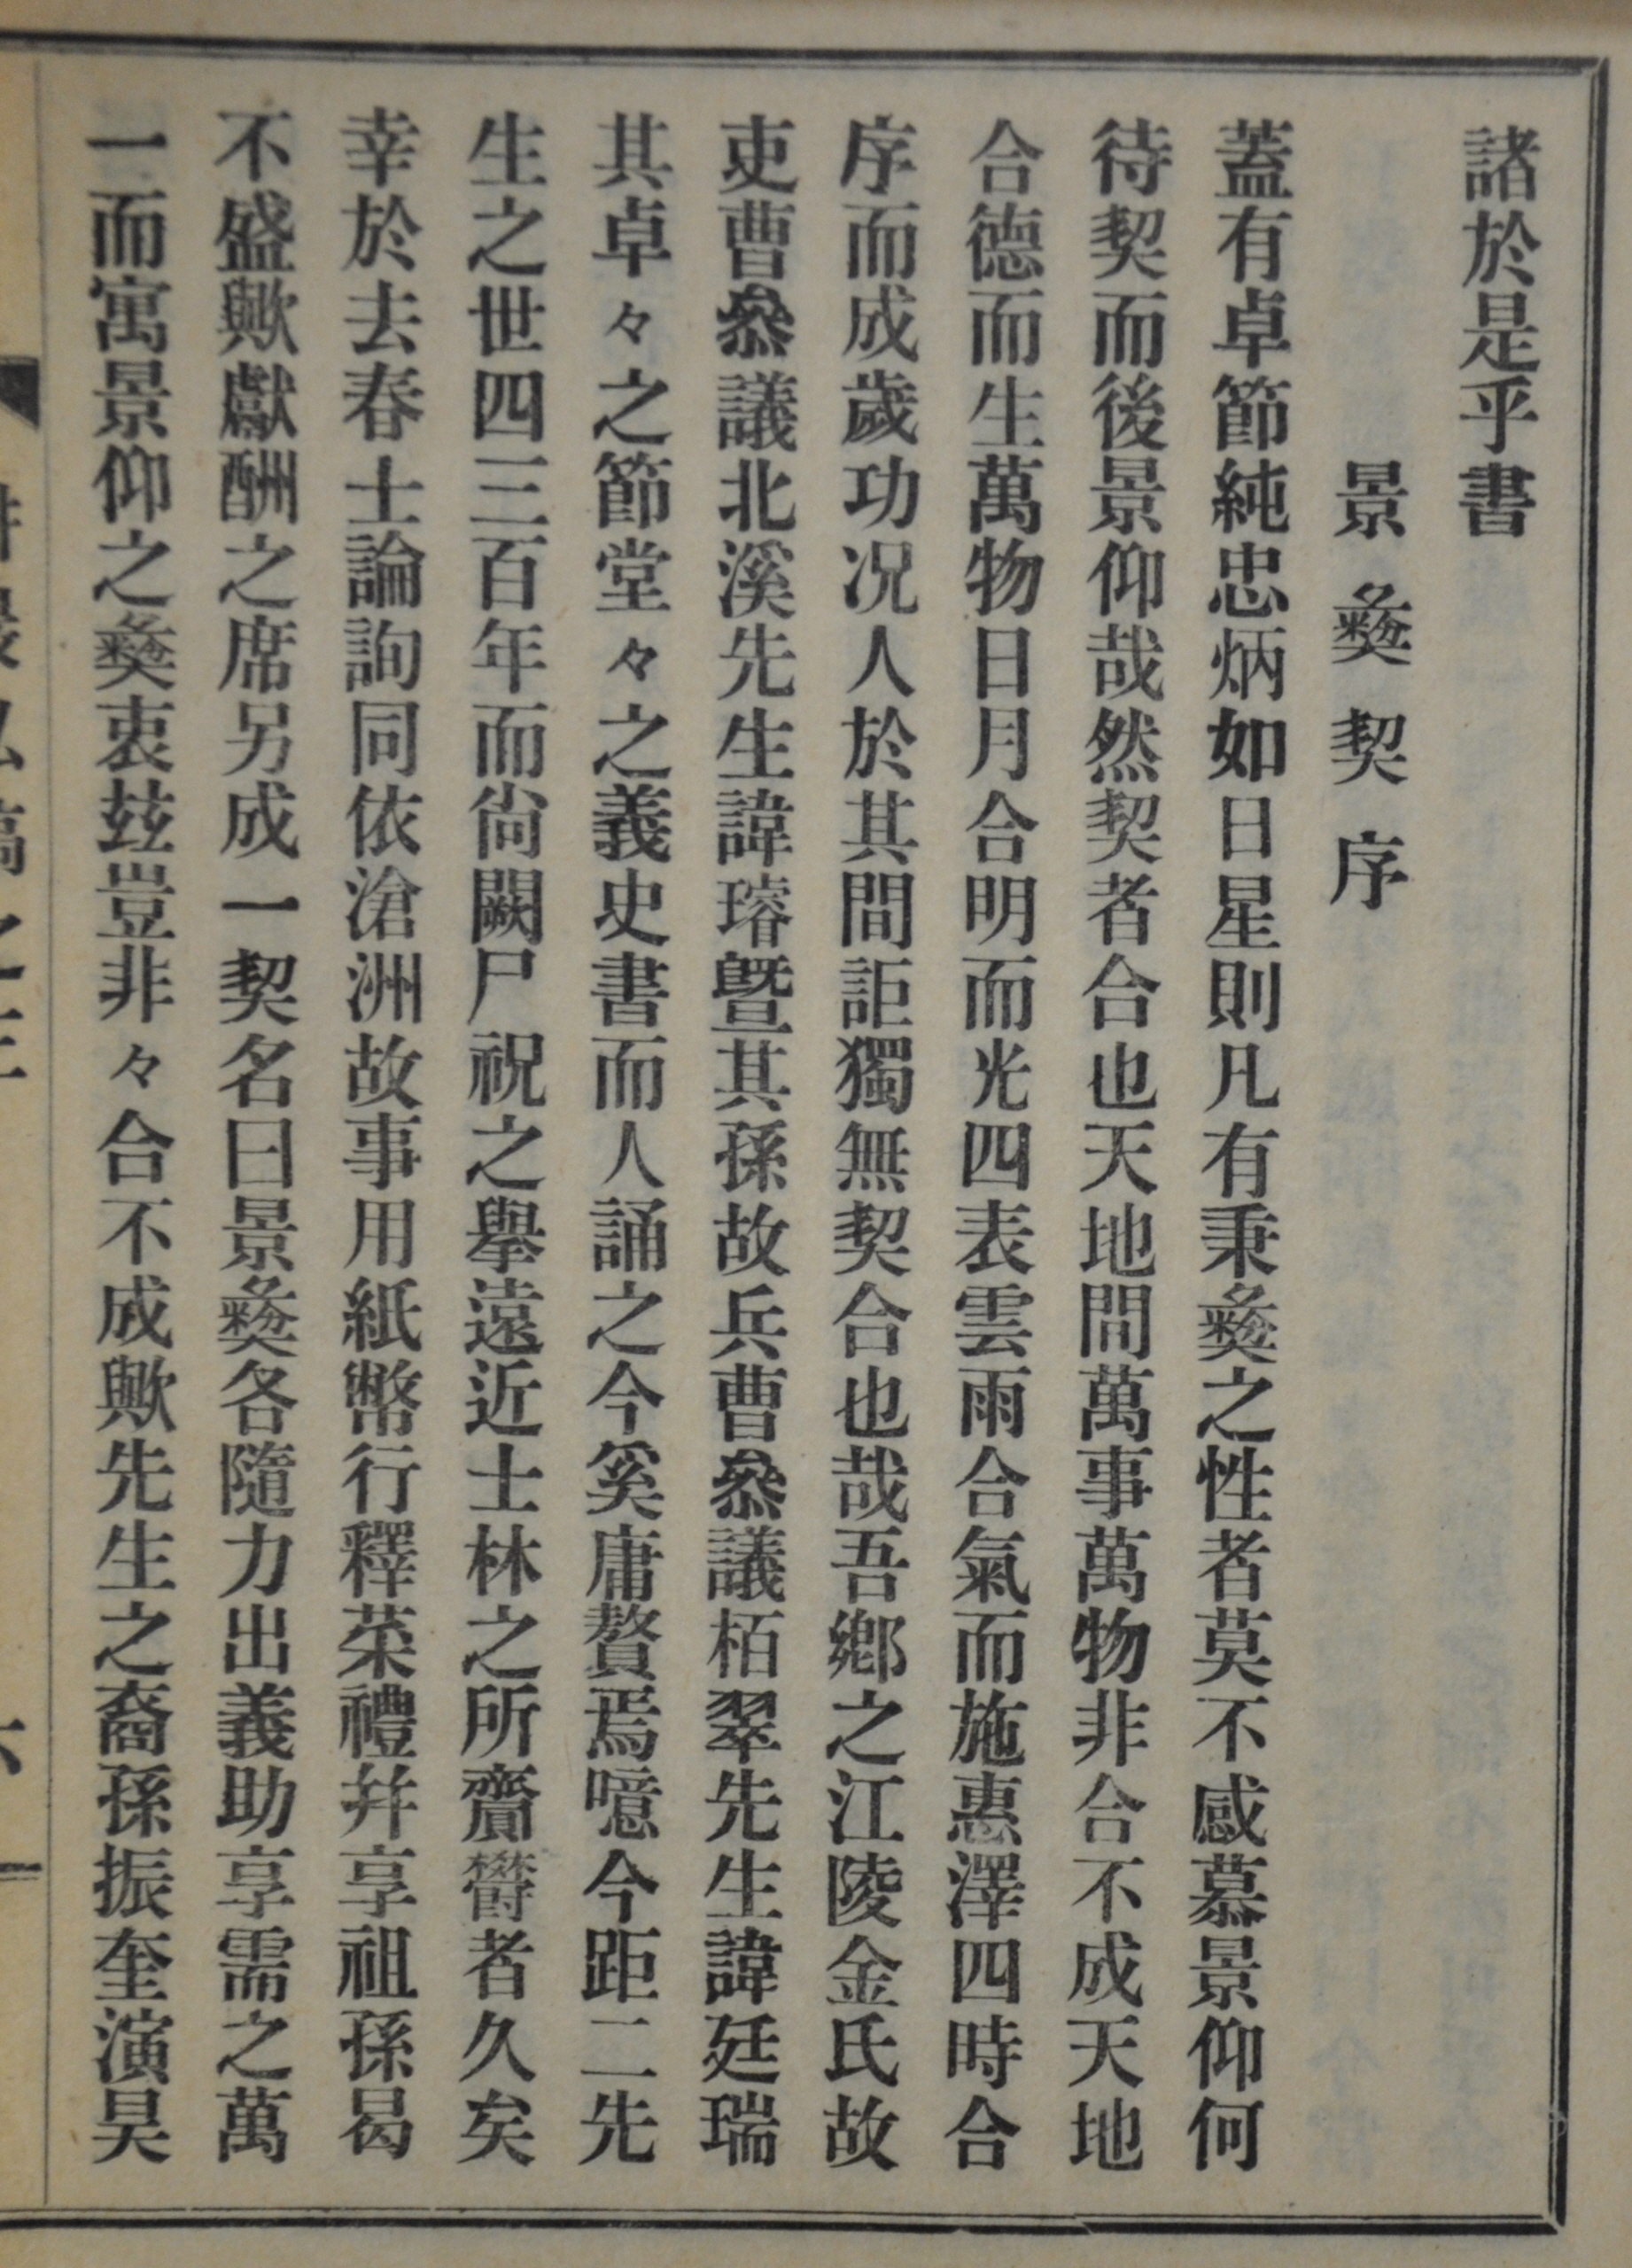 諸於是乎書
景彝契序
蓋有卓節純忠炳如日星則凡有秉彝之性者莫不感慕景仰何
待契而後景仰哉然契者合也天地間萬事萬物非合不成天地
合德而生萬物日月合明而光四表雲雨合氣而施惠澤四時合
序而成歲功况人於其間詎獨無契合也哉吾鄉之江陵金氏故
吏曹叅議北溪先生諱璿曁其孫故兵曹叅議栢翠先生諱廷瑞
其卓々之節堂々之義史書而人誦之今奚庸贅焉噫今距二先
生之世四三百年而尙闕尸祝之擧遠近士林之所齎欝者久矣
幸於去春士論詢同依滄洲故事用紙幣行釋菜禮幷享祖孫曷
不盛歟獻酬之席另成一契名曰景彝各隨力出義助享需之萬
一而寓景仰之彝衷玆豈非々合不成歟先生之裔孫振奎演昊